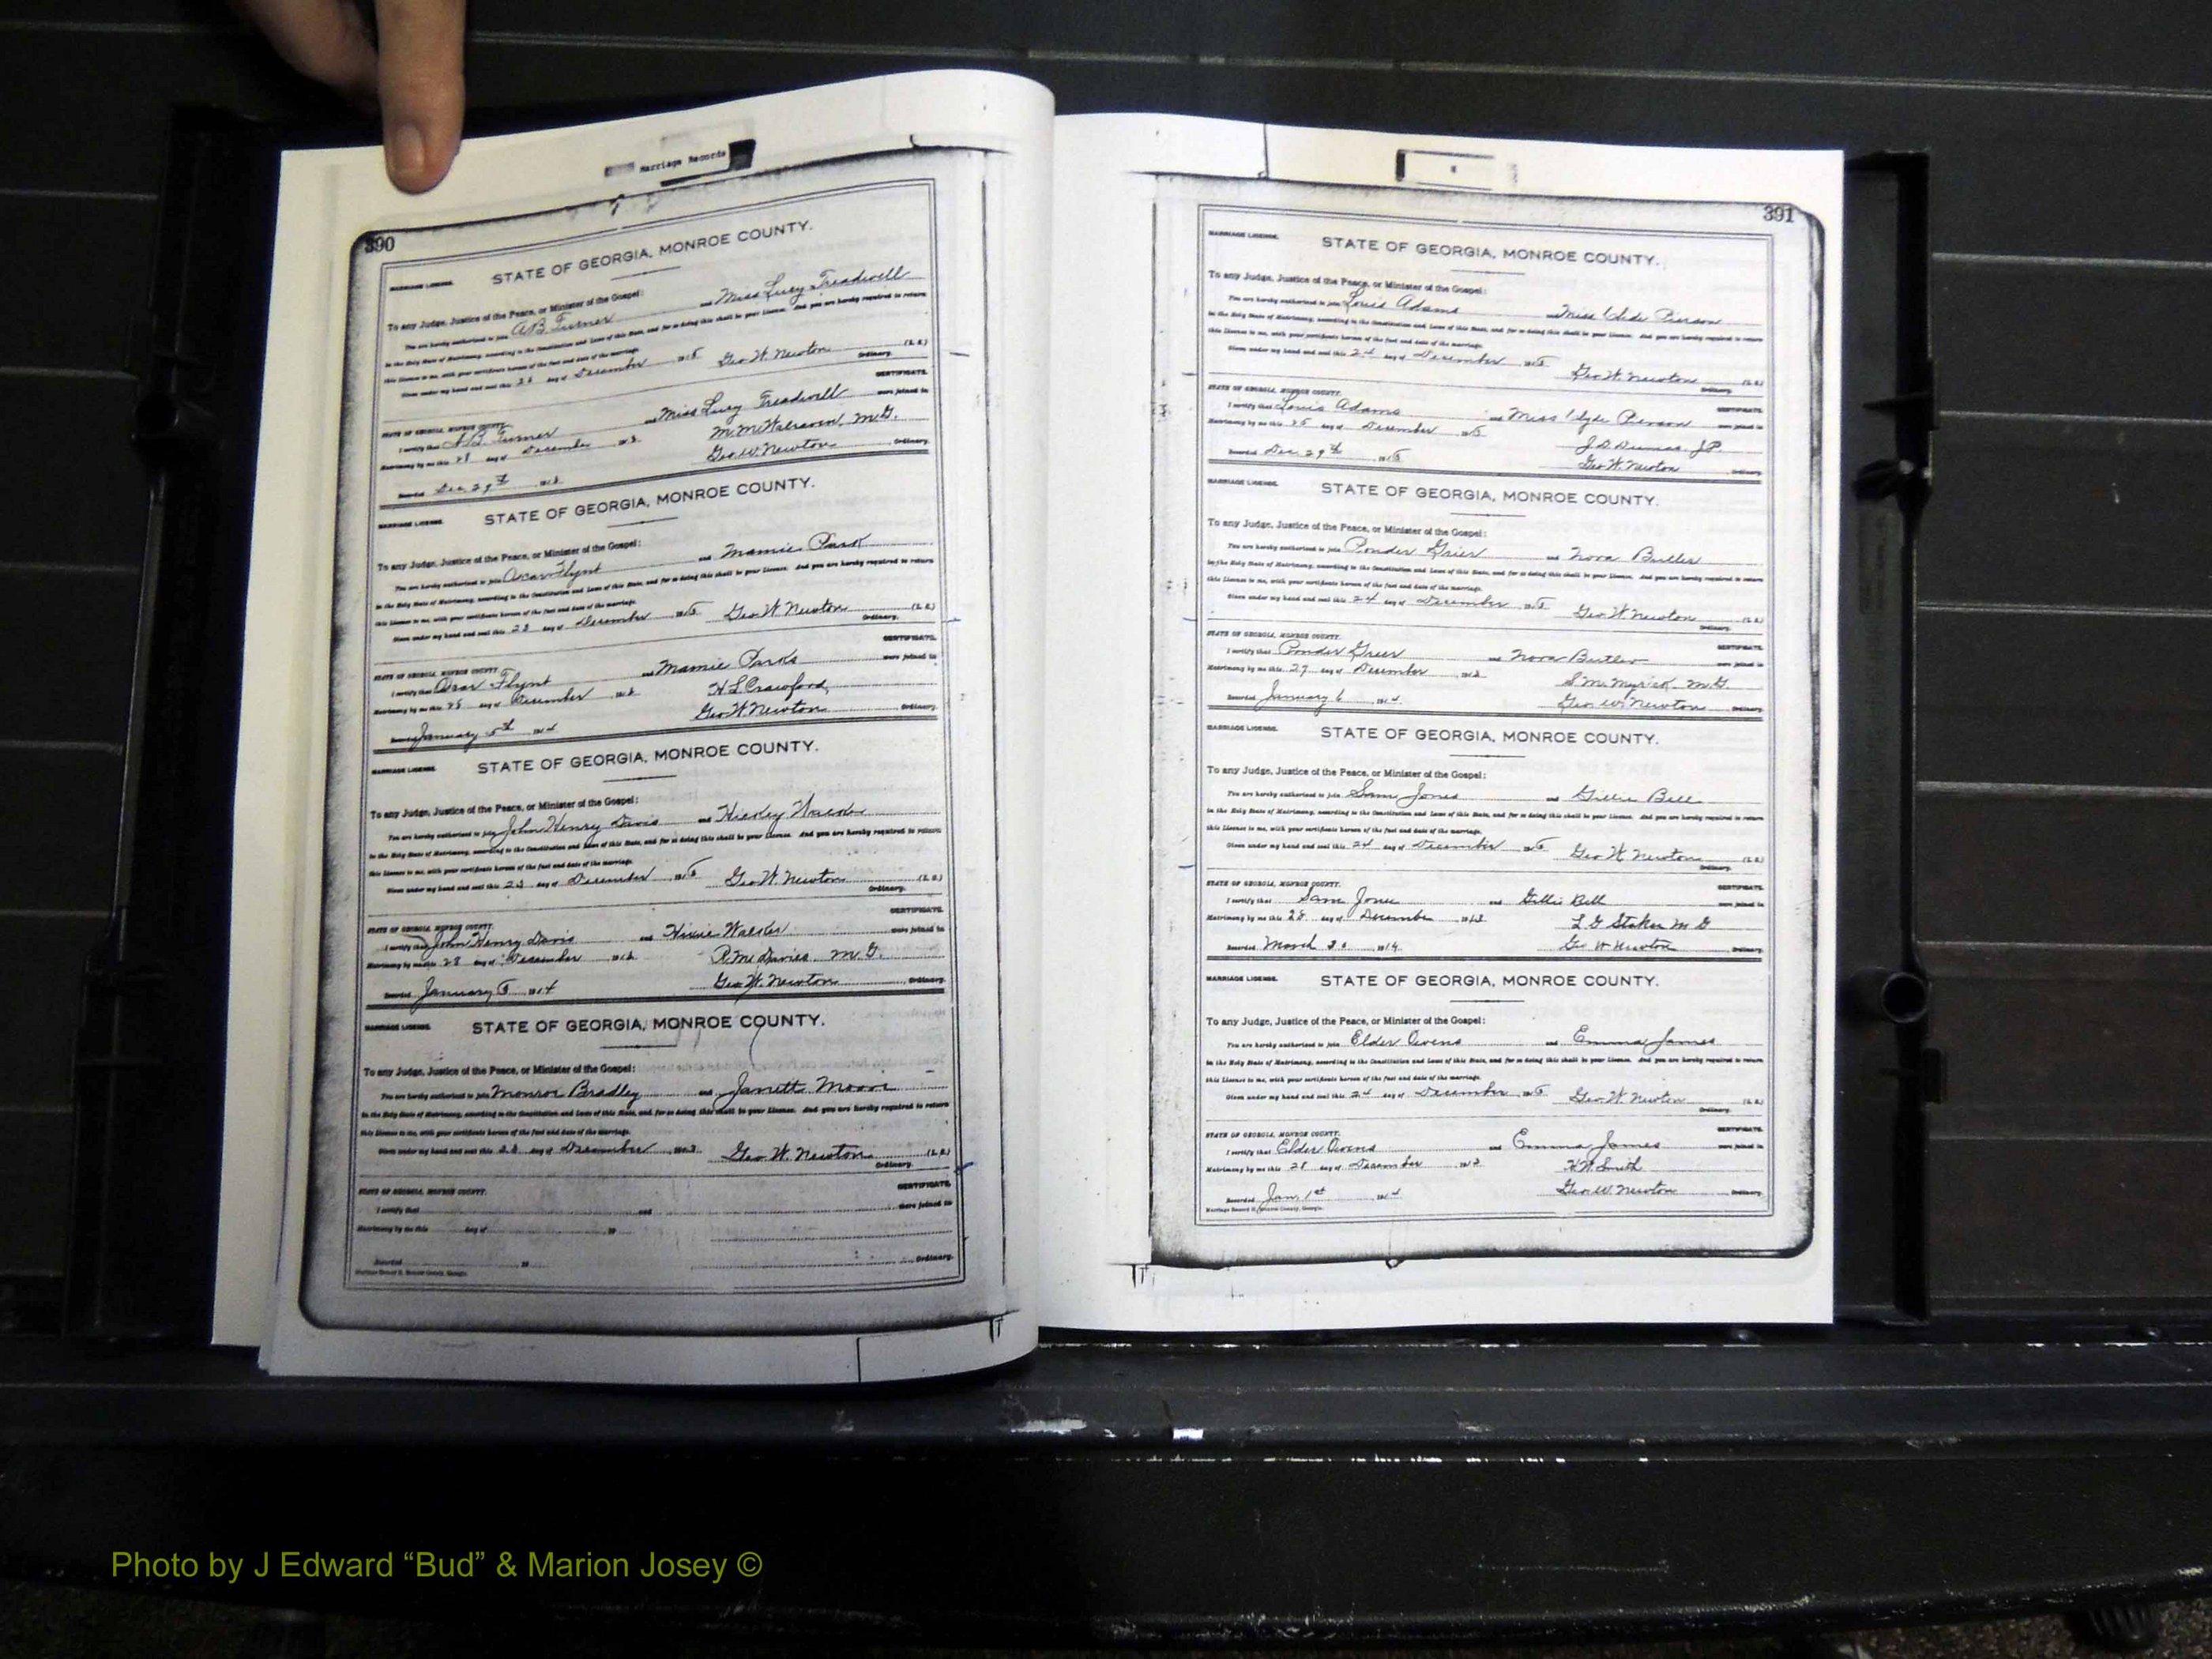 Marriage Records
390
MARRIAGE LICENSE. STATE OF GEORGIA, MONROE COUNTY.
To any Judge, Justice of the Peace, or Minister of the Gospel:
You are hereby authorized to join A B Turner and Miss Lucy Treadwell
in the Holy State of Matrimony, according to the Constitution and Laws of this State, and for so doing this shall be your License. And you are hereby required to return
this License to me, with your certificate hereon of the fact and date of the marriage.
Given under my hand and seal this day of December Geo W. Newton (L. S.)
Ordinary.
STATE OF GEORGIA, MONROE COUNTY. CERTIFICATE.
I certify that A B Turner and Miss Lucy Treadwell were joined in
Matrimony by me this 28 day of December M. M. Walraven, M.G.
Recorded Dec. 29th Geo. W. Newton Ordinary.
MARRIAGE LICENSE. STATE OF GEORGIA, MONROE COUNTY.
To any Judge, Justice of the Peace, or Minister of the Gospel:
You are hereby authorized to join Oscar Flynt and Mamie Park
in the Holy State of Matrimony, according to the Constitution and Laws of this State, and for so doing this shall be your License. And you are hereby required to return
this License to me, with your certificate hereon of the fact and date of the marriage.
Given under my hand and seal this 23 day of December Geo W. Newton (L. S.)
Ordinary.
STATE OF GEORGIA, MONROE COUNTY. CERTIFICATE.
I certify that Flynt and Mamie Parks were joined in
Matrimony by me this 25 day of December H. L. Crawford,
Recorded January 5th 1914 Geo. W. Newton Ordinary.
MARRIAGE LICENSE. STATE OF GEORGIA, MONROE COUNTY.
To any Judge, Justice of the Peace, or Minister of the Gospel:
You are hereby authorized to join John Henry Davis and
in the Holy State of Matrimony, according to the Constitution and Laws of this State, and for so doing this shall be your License. And you are hereby required to return
this License to me, with your certificate hereon of the fact and date of the marriage.
Given under my hand and seal this 23 day of December Geo W. Newton (L. S.)
Ordinary.
STATE OF GEORGIA, MONROE COUNTY. CERTIFICATE.
I certify that John Henry Davis and were joined in
Matrimony by me this 28 day of December Davies. M.G.
Recorded January 1914 Geo. W. Newton Ordinary.
MARRIAGE LICENSE. STATE OF GEORGIA, MONROE COUNTY.
To any Judge, Justice of the Peace, or Minister of the Gospel:
You are hereby authorized to join Monroe Bradley and Janett Moore
in the Holy State of Matrimony, according to the Constitution and Laws of this State, and for so doing this shall be your License. And you are hereby required to return
this License to me, with your certificate hereon of the fact and date of the marriage.
Given under my hand and seal this 23 day of December 1913 Geo. W. Newton (L. S.)
Ordinary.
STATE OF GEORGIA, MONROE COUNTY. CERTIFICATE.
I certify that and were joined in
Matrimony by me this day of 19
Recorded 19 Ordinary.
Marriage Record H, Monroe County, Georgia.
391
MARRIAGE LICENSE. STATE OF GEORGIA, MONROE COUNTY.
To any Judge, Justice of the Peace, or Minister of the Gospel:
You are hereby authorized to join Louis Adams and Miss Clyde Pierson
in the Holy State of Matrimony, according to the Constitution and Laws of this State, and for so doing this shall be your License. And you are hereby required to return
this License to me, with your certificate hereon of the fact and date of the marriage.
Given under my hand and seal this 24 day of December Geo. W. Newton (L. S.)
Ordinary.
STATE OF GEORGIA, MONROE COUNTY. CERTIFICATE.
I certify that Louis Adams and Miss Clyde Pierson were joined in
Matrimony by me this 25 day of December J. D. Dumas. J.P.
Recorded Dec. 29th Geo. W. Newton Ordinary.
MARRIAGE LICENSE. STATE OF GEORGIA, MONROE COUNTY.
To any Judge, Justice of the Peace, or Minister of the Gospel:
You are hereby authorized to join Ponder Grier and Nora Butler
in the Holy State of Matrimony, according to the Constitution and Laws of this State, and for so doing this shall be your License. And you are hereby required to return
this License to me, with your certificate hereon of the fact and date of the marriage.
Given under my hand and seal this 24 day of December Geo. W. Newton (L. S.)
Ordinary.
STATE OF GEORGIA, MONROE COUNTY. CERTIFICATE.
I certify that Ponder Greer and Nora Butler were joined in
Matrimony by me this 27 day of December S. M. Myrick. M.G.
Recorded January 6 1914. Geo. W. Newton Ordinary.
MARRIAGE LICENSE. STATE OF GEORGIA, MONROE COUNTY.
To any Judge, Justice of the Peace, or Minister of the Gospel:
You are hereby authorized to join Sam Jones and Gillie Bell
in the Holy State of Matrimony, according to the Constitution and Laws of this State, and for so doing this shall be your License. And you are hereby required to return
this License to me, with your certificate hereon of the fact and date of the marriage.
Given under my hand and seal this 24 day of December Geo W. Newton (L. S.)
Ordinary.
STATE OF GEORGIA, MONROE COUNTY. CERTIFICATE.
I certify that Sam Jones and Gillie Bell were joined in
Matrimony by me this 28 day of December 1913 L G Stokes M G
Recorded March 1914. Geo W Newton Ordinary.
MARRIAGE LICENSE. STATE OF GEORGIA, MONROE COUNTY.
To any Judge, Justice of the Peace, or Minister of the Gospel:
You are hereby authorized to join Elder Owens and Emma James
in the Holy State of Matrimony, according to the Constitution and Laws of this State, and for so doing this shall be your License. And you are hereby required to return
this License to me, with your certificate hereon of the fact and date of the marriage.
Given under my hand and seal this 24 day of December Geo. W. Newton (L. S.)
Ordinary.
STATE OF GEORGIA, MONROE COUNTY. CERTIFICATE.
I certify that Elder Owens and Emma James were joined in
Matrimony by me this 28 day of December 1913 H W Smith
Recorded Jan. 1st 1914 Geo. W. Newton Ordinary.
Marriage Record H, Monroe County, Georgia.
Photo by J Edward “Bud” & Marion Josey ©